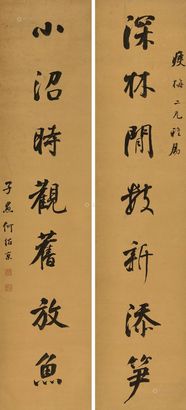 瘦梅二兄雅屬
深林閒數新添筍
小沼時觀舊放魚
子貞何紹京